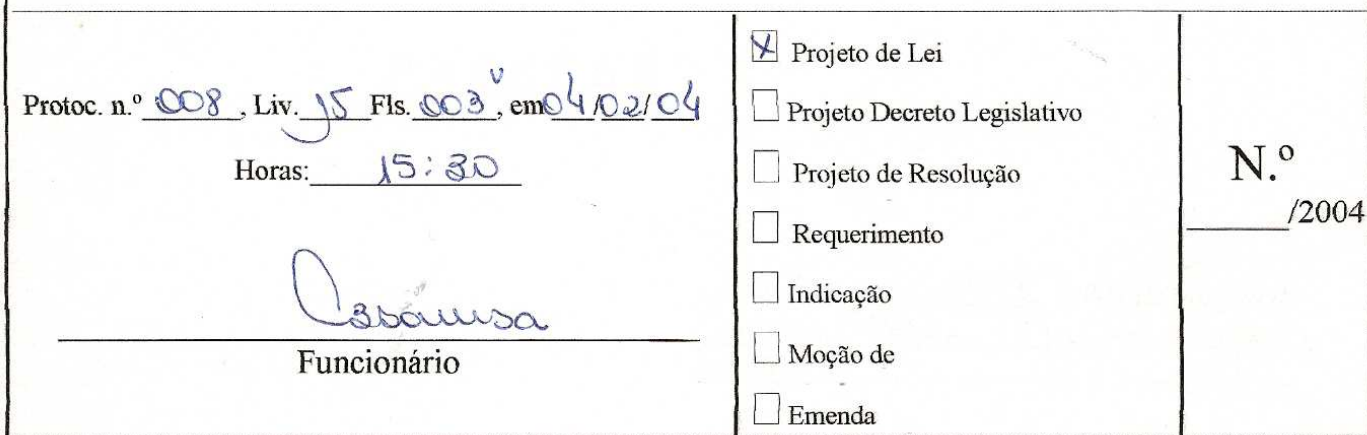 Protoc. n.º 008, Liv. 15 Fls. 003v, em 04/02/04
Horas: 15:30
Funcionário
X Projeto de Lei
Projeto Decreto Legislativo
Projeto de Resolução
Requerimento
Indicação
Moção de
Emenda
N.º
/2004